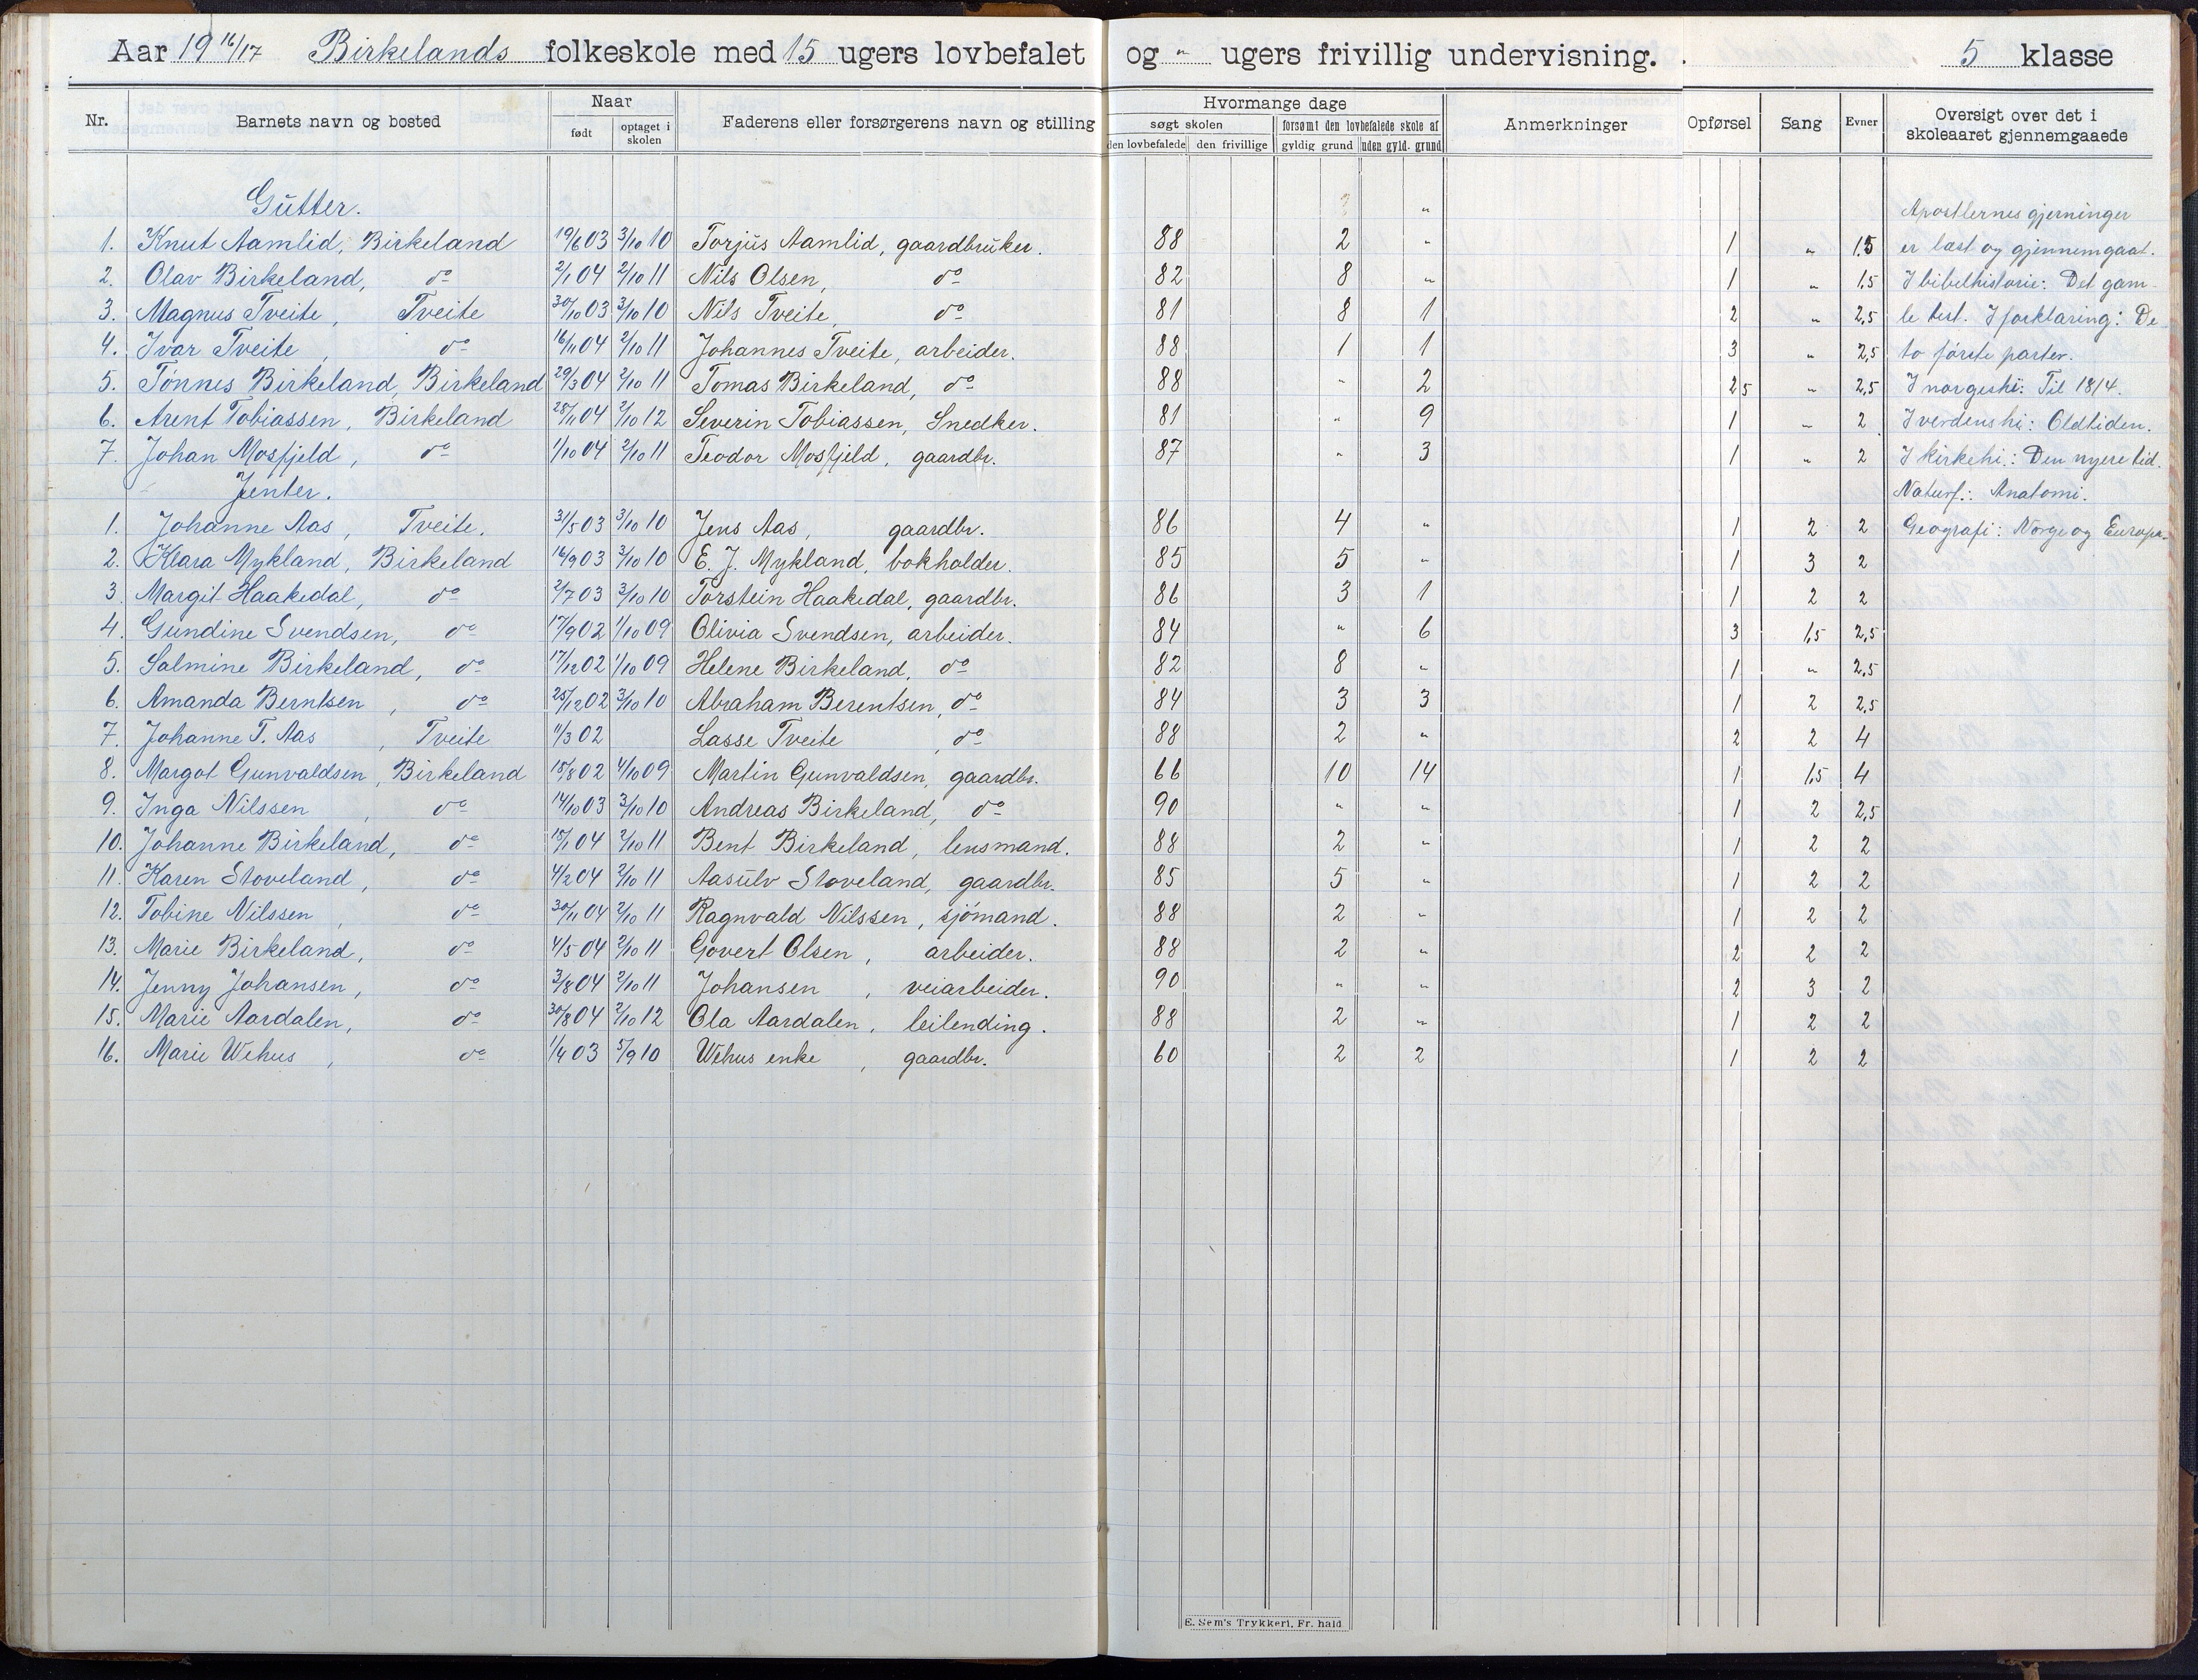 Aar 19 16/17 Birkelands folkeskole med 15 ugers lovbefalet og " ugers frivillig undervisning. 5 klasse
Nr. Barnets navn og bosted Naar født optaget i skolen Faderens eller forsørgerens navn og stilling Hvormange dage søgt skolen den lovbefalede den frivillige forsømt den lovbefalede skole af gyldig grund uden gyld. grund Anmerkninger Opførsel Sang Evner Oversigt over det i skoleaaret gjennemgaaede
Gutter. " Apostlernes gjerninger
1. Knut Aamlid, Birkeland 19/6 03 3/10 10 Torjus Aamlid, gaardbruker. 88 2 " 1 " 1.5 er læst og gjennemgaat.
2. Olav Birkeland, do 2/1 04 2/10 11 Nils Olsen, do 82 8 " 1 " 1.5 I bibelhistorie: Det gam-
3. Magnus Tveite, Tveite 30/10 03 3/10 10 Nils Tveite, do 81 8 1 2 " 2,5 le test. I forklaring: De
4. Ivar Tveite, do 16/11 04 2/10 11 Johannes Tveite, arbeider. 88 1 1 3 " 2,5 to første parter.
5. Tönnes Birkeland, Birkeland 29/3 04 2/10 11 Tomas Birkeland, do 88 " 2 2 5 " 2,5 I norgeshi: Til 1814.
6. Arent Tobiassen, Birkeland 28/11 04 2/10 12 Severin Tobiassen, Snedker. 81 " 9 1 " 2 I verdenshi: Oldtiden.
7. Johan Mosfjeld, do 1/10 04 2/10 11 Teodor Mosfjeld, gaardbr. 87 " 3 1 " 2 I kirkehi.: Den nyere tid.
Jenter. Naturf.: Anatomi.
1. Johanne Aas, Tveite. 31/5 03 3/10 10 Jens Aas, gaardbr. 86 4 " 1 2 2 Geografi: Norge og Europa.
2. Klara Mykland, Birkeland 16/9 03 3/10 10 E. J. Mykland, bokholder. 85 5 " 1 3 2
3. Margit Haakedal, do 2/7 03 3/10 10 Torstein Haakedal, gaardbr. 86 3 1 1 2 2
4. Gundine Svendsen, do 17/9 02 1/10 09 Olivia Svendsen, arbeider. 84 " 6 3 1,5 2,5
5. Salmine Birkeland, do 17/12 02 1/10 09 Helene Birkeland, do 82 8 " 1 " 2.5
6. Amanda Berntsen, do 25/12 02 3/10 10 Abraham Berentsen, do 84 3 3 1 2 2,5
7. Johanne T. Aas, Tveite 11/3 02 Lasse Tveite, do 88 2 " 2 2 4
8. Margot Gunvaldsen, Birkeland 15/8 02 4/10 09 Martin Gunvaldsen, gaardbr. 66 10 14 1 1,5 4
9. Inga Nilssen, do 14/10 03 3/10 10 Andreas Birkeland, do 90 " " 1 2 2,5
10. Johanne Birkeland, do 15/1 04 2/10 11 Bent Birkeland, lensmand. 88 2 " 1 2 2
11. Karen Stoveland, do 4/2 04 2/10 11 Aasulv Stoveland, gaardbr. 85 5 " 1 2 2
12. Tobine Nilssen, do 30/11 04 2/10 11 Ragnvald Nilssen, sjömand. 88 2 " 1 2 2
13. Marie Birkeland, do 4/5 04 2/10 11 Govert Olsen, arbeider. 88 2 " 2 2 2
14. Jenny Johansen, do 3/8 04 2/10 11 Johansen, veiarbeider. 90 " " 2 3 2
15. Marie Aardalen, do 30/8 04 2/10 12 Ola Aardalen, leilending. 88 2 " 1 2 2
16. Marie Wehus, do 1/4 03 5/9 10 Wehus enke, gaardbr. 60 2 2 1 2 2
E. Sem's Trykkeri, Fr.hald